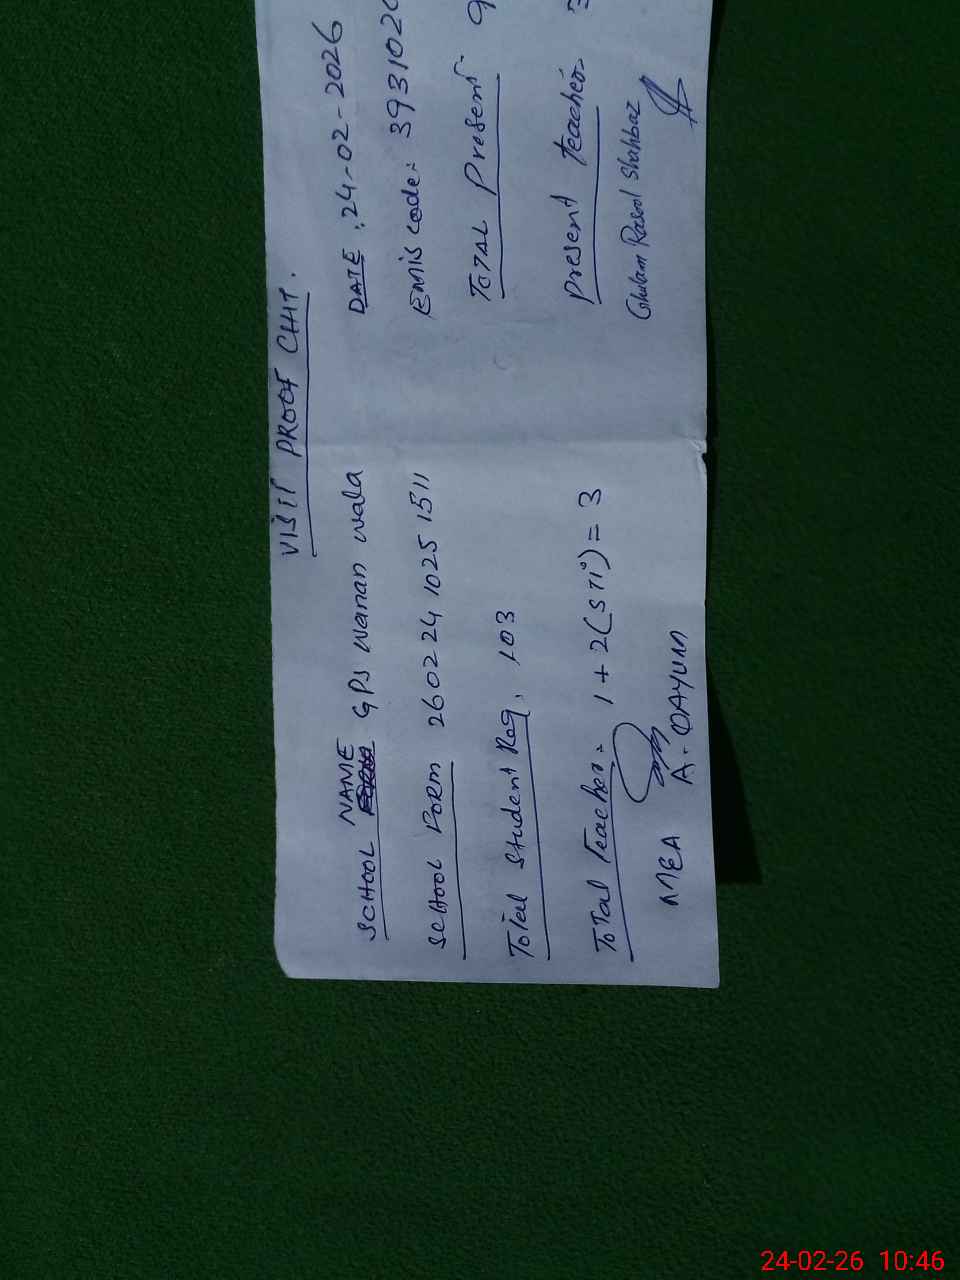 VISIT PROOF CHIT.
SCHOOL NAME GPS Wanan wala
DATE : 24-02-2026
SCHOOL FORM 260224 1025 1511
EMIS code: 393102
Total Student Reg. 103
TOTAL Present
Total Teacher = 1 + 2(STI) = 3
Present teacher = 3
Ghulam Rasool Shahbaz
MEA A. QAYUM
24-02-26 10:46